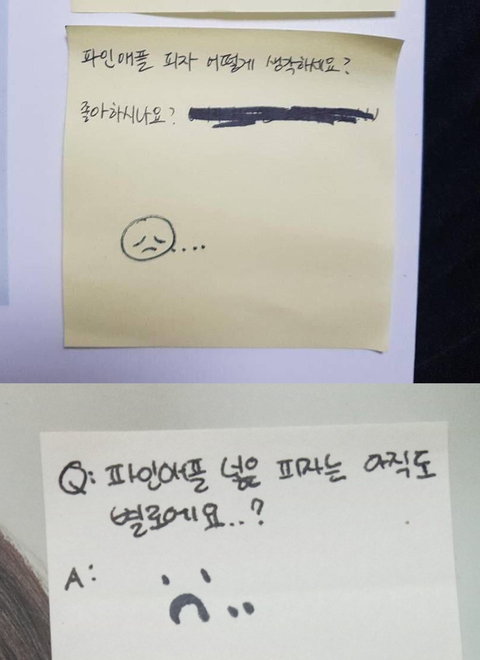 파인애플 피자 어떻게 생각하세요?
좋아하시나요?
....
Q: 파인애플 넣은 피자는 아직도
별로에요..?
A: